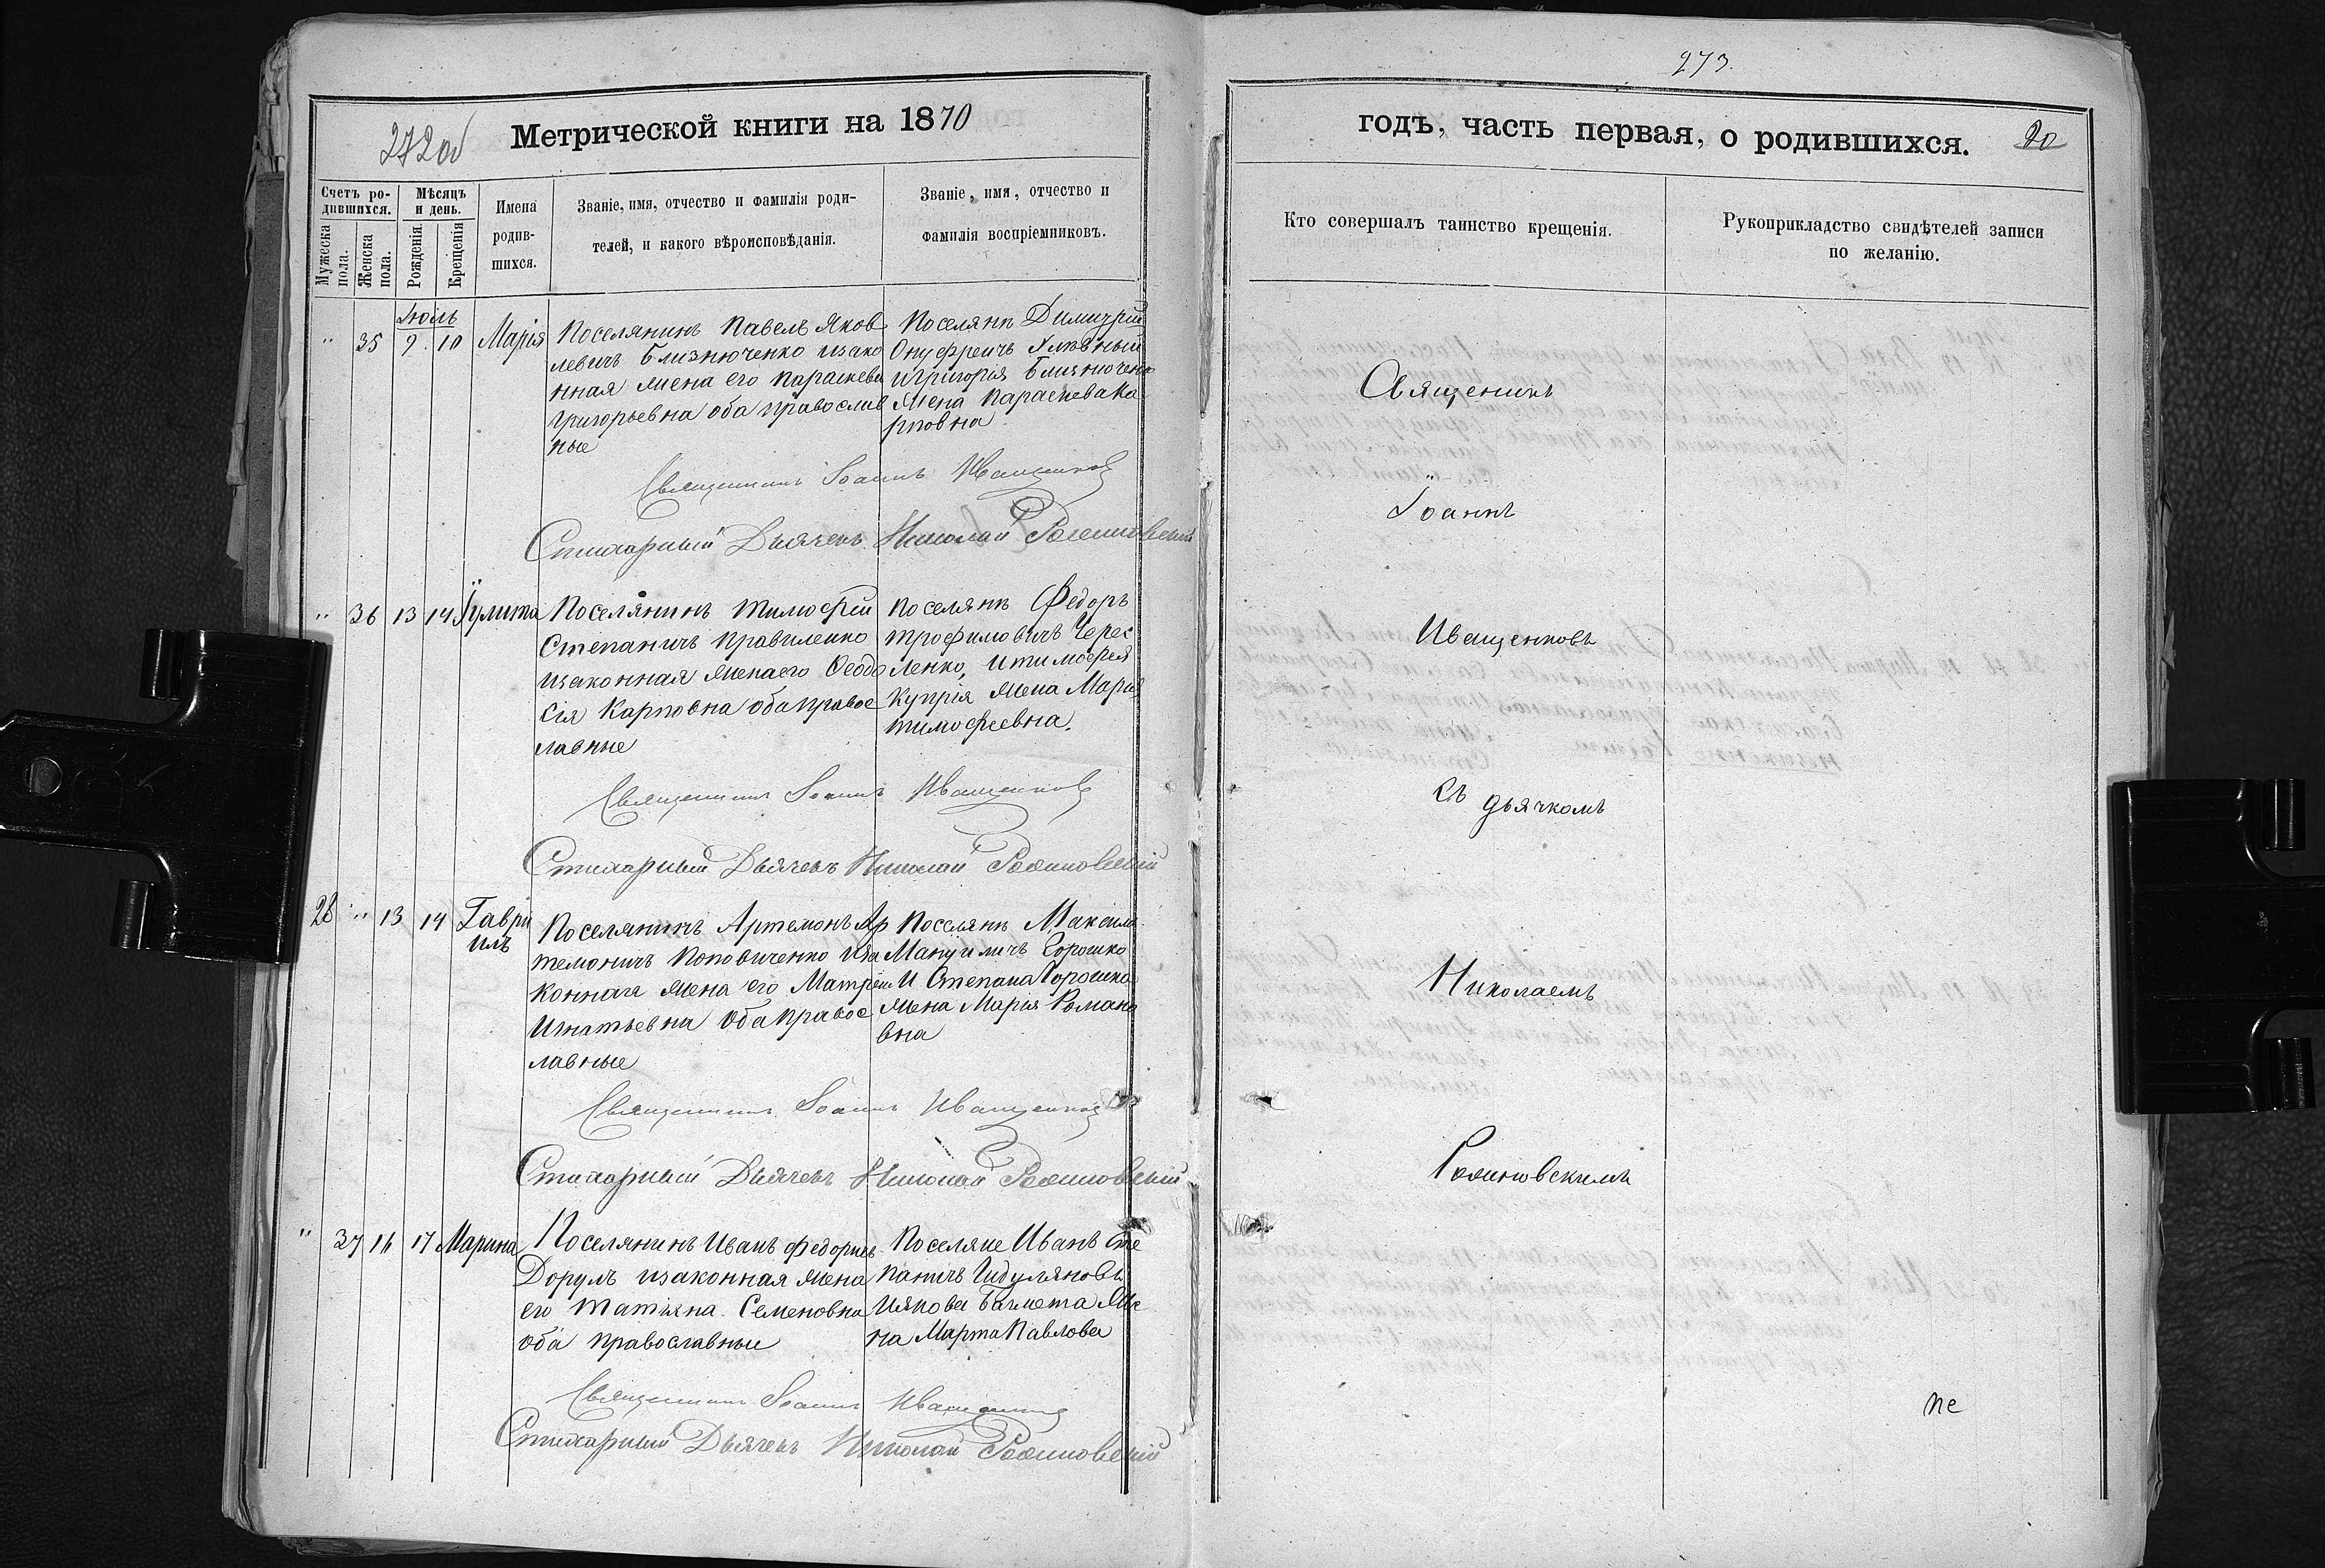 272об
Метрической книги на 1870
Счетъ ро-
дившихся.
Мѣсяцъ
и день.
Имена
родив-
шихся.
Званіе, имя, отчество и фамилія роди-
телей, и какого вѣроисповѣданія.
Званіе, имя, отчество и
фамилія воспріемниковъ.
Мужеска
пола.
Женска
пола.
Рожденія.
Крещенія
Іюль
" 35 9. 10 Марія
Поселянинъ Павелъ Яков
левичъ Близнюченко изако
нная жена его Параскева
Григорьевна оба православ
ные
Поселянъ Димитрій
Онуфреичъ
иГригорія Близнюченк
жена Параскева Ка
рповна
Священникъ Іоаннъ Иващенковъ
Стихарный Дьячекъ Николай
" 36 13 14 Іулита
Поселянинъ Тимофей
Степаничъ Правиленко
изаконная женаего Феодо
сія Карповна оба правос
лавные
Поселянъ Федоръ
Трофимовичъ Черес
ленко, итимофея
Купрія жена Марія
Тимофеевна.
Священникъ Іоаннъ Иващенковъ
Стихарный Дьячекъ Николай
28 " 13 14 Гаври
илъ
Поселянинъ Артемонъ Ар
темоничъ Поповиченко иза
конная жена его Матрен
Игнатьевна оба правос
лавные
Поселянъ Максимъ
Мануиличъ Горошко
и Степана Горошка
жена Марія Романо
вна
Священникъ Іоаннъ Иващенковъ
Стихарный Дьячекъ Николай
" 37 16 17 Марина
Поселянинъ Иванъ Федорич
Дорулъ изаконная жена
его Татіяна Семеновна
оба православные
Поселяне Иванъ Сте
паничъ Гидуляновъ
иякова Бачмета же
на Марта Павлова
Священникъ Іоаннъ Иващенковъ
Стихарный Дьячекъ Николай
273.
годъ, часть первая, о родившихся.
20
Кто совершалъ таинство крещенія.
Рукоприкладство свидѣтелей записи
по желанію.
Священикъ
Іоаннъ
Иващенковъ
съ дьячкомъ
Николаемъ
не